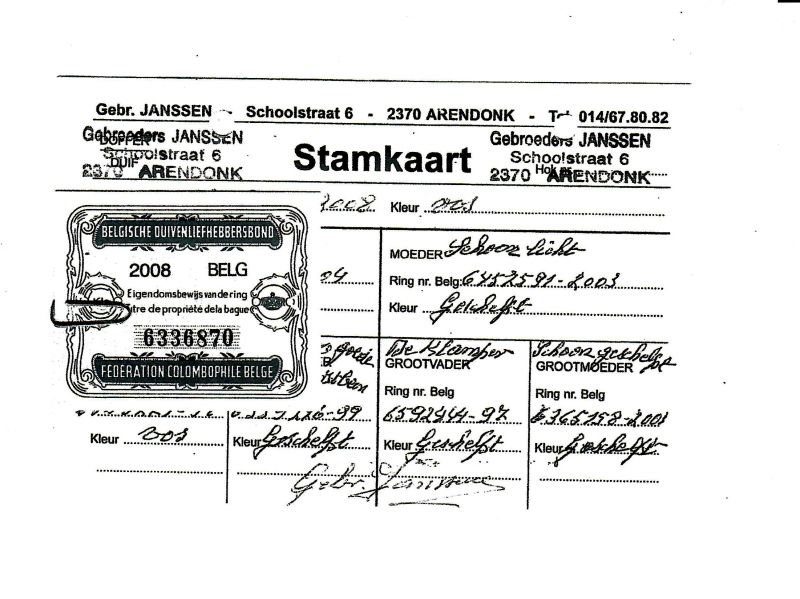 Gebr. JANSSEN - Schoolstraat 6 - 2370 ARENDONK - 014/67.80.82
Gebroeders JANSSEN
Schoolstraat 6
2370 ARENDONK
DOFFER
DUIF
Stamkaart
Gebroeders JANSSEN
Schoolstraat 6
2370 ARENDONK
2008 Kleur vos
BELGISCHE DUIVENLIEFHEBBERSBOND
2008 BELG
Eigendomsbewijs van de ring
Titre de propriété de la bague
6336870
FEDERATION COLOMBOPHILE BELGE
MOEDER Schoon licht
Ring nr. Belg: 6452591-2003
Kleur Geschelpt
GROOTVADER
Ring nr. Belg
6592444-97
Kleur Geschelpt
Schoon geschelpt
GROOTMOEDER
Ring nr. Belg
6365158-2001
Kleur Geschelpt
Kleur vos
Kleur Geschelpt
Gebr. Janssen